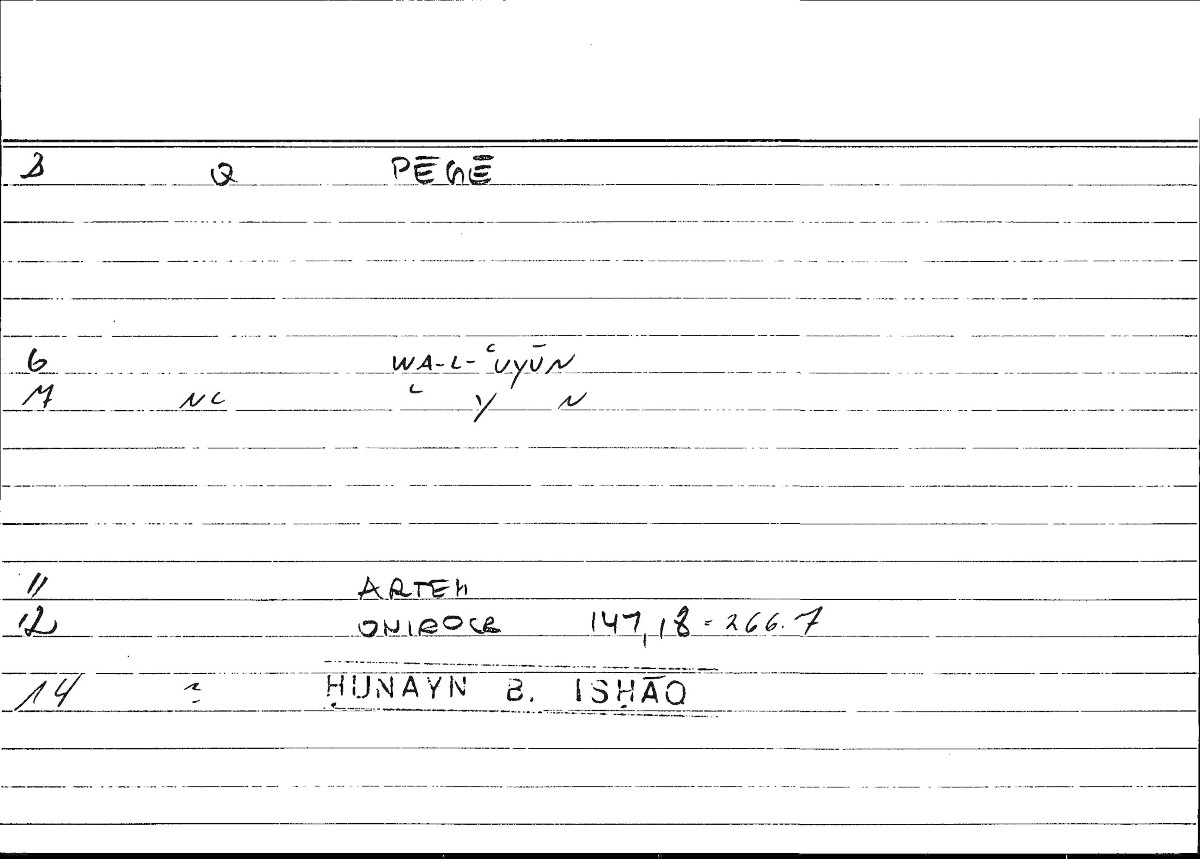 3 Q PĒGĒ
6 WA-L-ʿUYŪN
M NC ʿ Y N
11 ARTEM
12 ONIROCR 147,18 = 266.7
14 ḤUNAYN B. ISḤĀQ